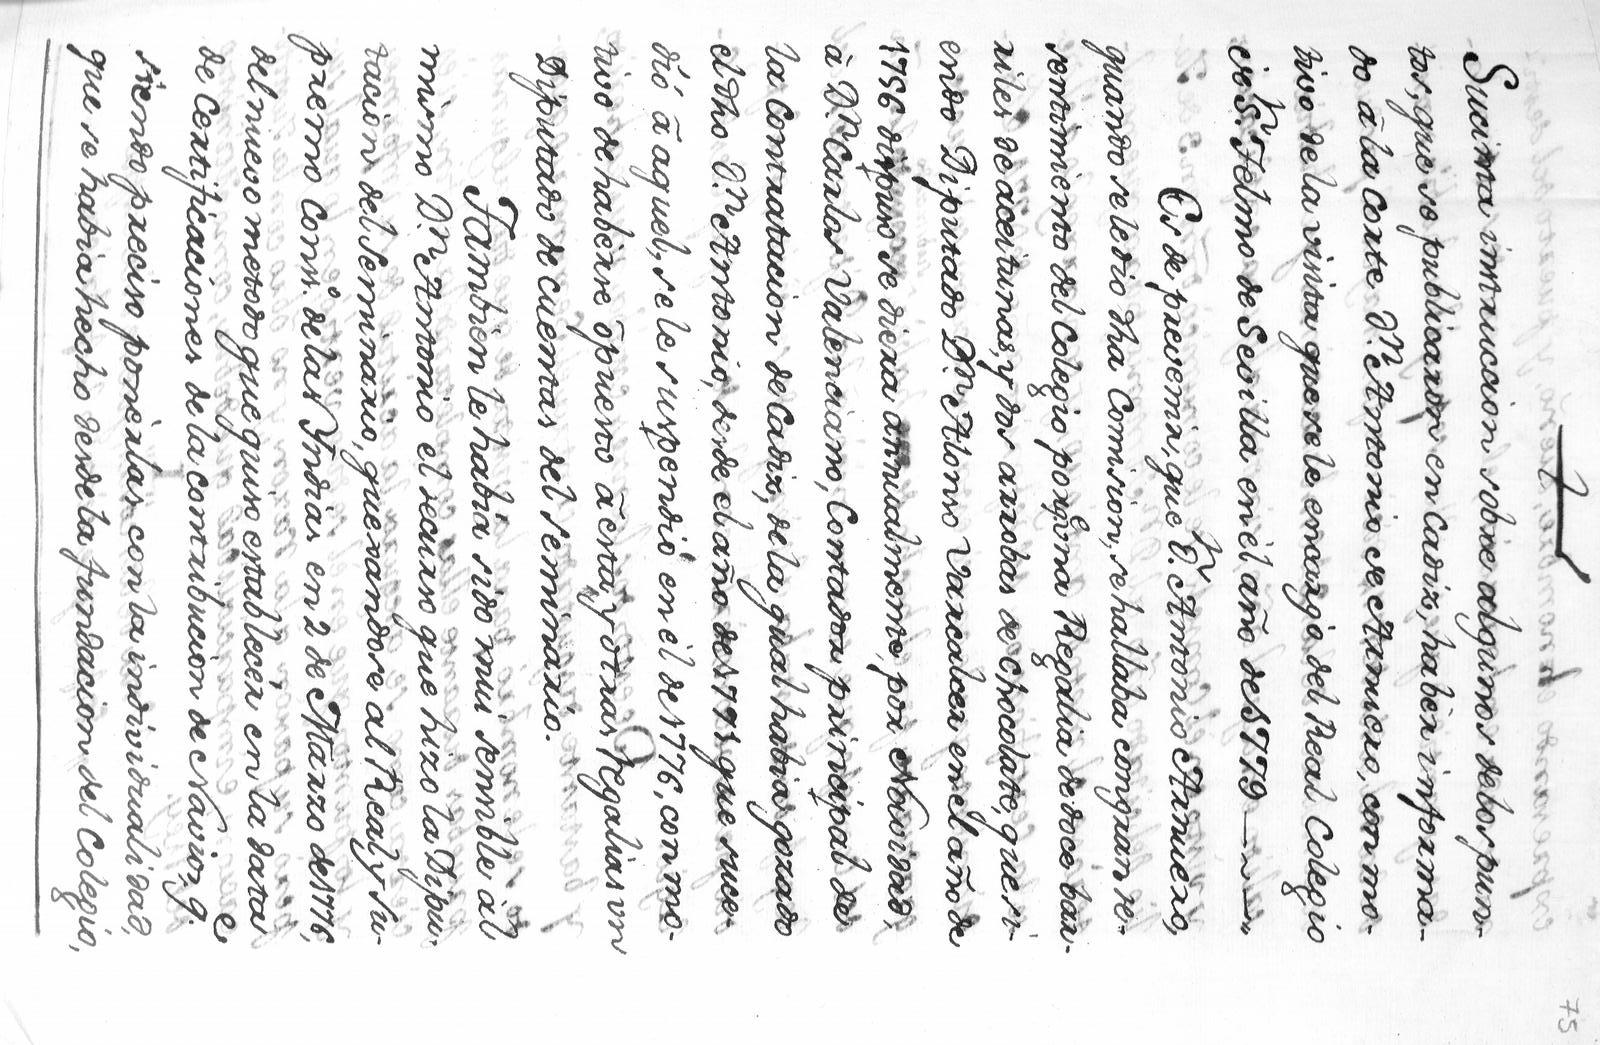 75
Sucinta instruccion sobre algunos delos pun-
tos, que se publicaron en Cadiz, haber informa-
do â la Corte D.n Antonio de Arnuero, con mo-
tivo de la visita que se le encargò del Real Colegio
de S.n Telmo de Sevilla en èl año de 1779 ———"
Es de prevenir, que D.n Antonio Arnuero,
quando se le dio dha Comision, se hallaba con gran re-
sentimiento del Colegio, porq.e una Regalia de doce bar-
riles de aceitunas, y dos arrobas de chocolate, que si-
endo Diputado D.n Alonso Vancalcer en el año de
1756 dispuso se diera annualmente, por Navidad,
â D.n Carlos Valenciano, Contador principal de
la Contratacion de Cadiz, de la qual habia gozado
el dho D.n Antonio, desde el año de 1771 que suce-
diò â aquel, se le suspendiò en èl de 1776, con mo-
tivo de haberse opuesto â esta, y otras Regalias un
Diputado de cuentas del Seminario.
Tambien le habia sido mui sensible al
mismo D.n Antonio el recurso que hizo la Dipu-
tacion del Seminario, quexandose al Real, y Su-
premo Cons.o de las Yndias en 2 de Marzo de 1776,
del nuevo metodo que quiso establecer en la data
de Certificaciones de la contribucion de Navios, q.e
siendo preciso ponerlas con la individualidad,
que se habia hecho desde la fundacion del Colegio,